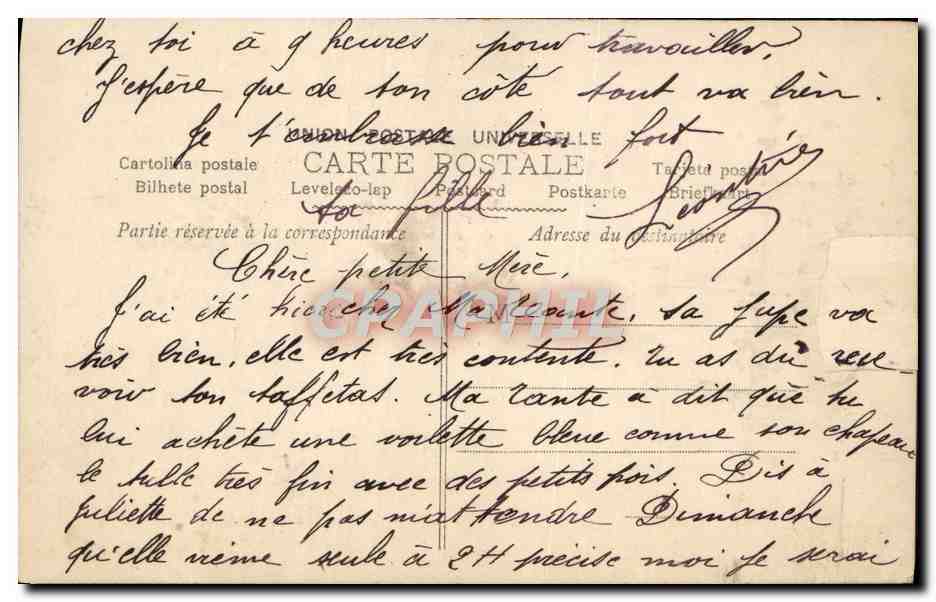 chez toi à 9 heures pour travailler,
J'espère que de ton côté tout va bien.
Je t'embrasse bien fort
UNION POSTALE UNIVERSELLE
CARTE POSTALE
Cartolina postale
Tarjeta postal
Bilhete postal Levelezo-lap Postcard Postkarte Briefkaart
ta fille
Partie réservée à la correspondance Adresse du destinataire
Chère petite Mère,
J'ai été hier chez Ma Tante, sa jupe va
très bien, elle est très contente. Tu as dû rece-
voir son taffetas. Ma Tante a dit que tu
lui achète une voilette bleue comme son chapeau
le tulle très fin avec des petits pois. Dis à
Juliette de ne pas m'attendre Dimanche
qu'elle vième seule à 2H précise moi je serai
CPAPHIL